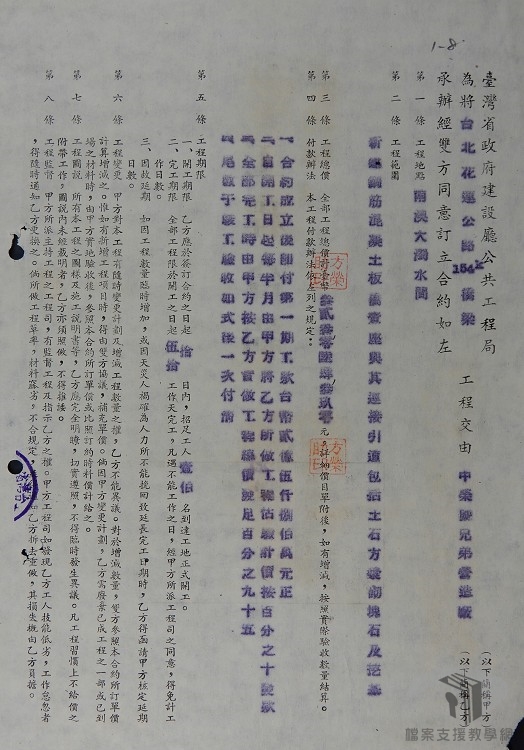 1-8
臺灣省政府建設廳公共工程局 （以下簡稱甲方）
為將台北花蓮公路154K橋梁 工程交由 中榮 兄弟營造廠 （以下簡稱乙方）
承辦經雙方同意訂立合約如左
第一條 工程地點 南澳大濁水間
第二條 工程範圍
新建鋼筋混凝土板橋壹座與其連接引道包括土石方 砌塊石及
第三條 工程總價 全部工程總價 元，詳細價目單附後，如有增減，按照實際驗收數量結算。
第四條 付款辦法 本工程付款辦法依左列之規定：
合約成立後即付第一期工款台幣貳 伍仟捌佰萬元正
自開工日起每半月由甲方將乙方所做工程估驗計價按百分之十 款
全部完工時由甲方按乙方實做工程總價 足百分之九十五
尾款于竣工驗收如式後一次付清
第五條 工程期限
一、開工期限 乙方應於簽訂合約之日起 拾 日內，招足工人 壹佰 名到達工地正式開工。
二、完工期限 全部工程限於開工之日起 伍拾 工作天完工，凡遇不能工作之日，經甲方所派工程司之同意，得免計工
作日數。
三、因故延期 如因工程數量臨時增加，或因天災人禍確為人力所不能挽回致延長完工日期時，乙方得函請甲方核定延期
日數。
第六條 工程變更 甲方對本工程有隨時變更計劃及增減工程數量之權，乙方不能異議。對於增減數量，雙方參照本合約所訂單價
計算增減之。惟如有新增工程項目時，得由雙方協議，補充單價。倘因甲方變更計劃，乙方需廢棄已成工程之一部或已到
場之材料時，由甲方實地驗收後，參照本合約所訂單價或比照訂約時料價計給之。
第七條 工程圖說 所有本工程之圖樣及施工說明書等，乙方應完全明瞭，切實遵照，不得臨時發生異議。凡工程習慣上不給價之
附帶工作，圖說內未經載明者，乙方亦須照做，不得推諉。
第八條 工程監督 甲方所派主持工程之工程司，有監督工程及指示乙方之權。甲方工程司如發現乙方工人技能低劣，工作怠忽者
，得隨時通知乙方更換之。倘所做工程草率，材料窳劣，不合規定， 乙方拆去重做，其損失概由乙方負擔。
檔案支援教學網